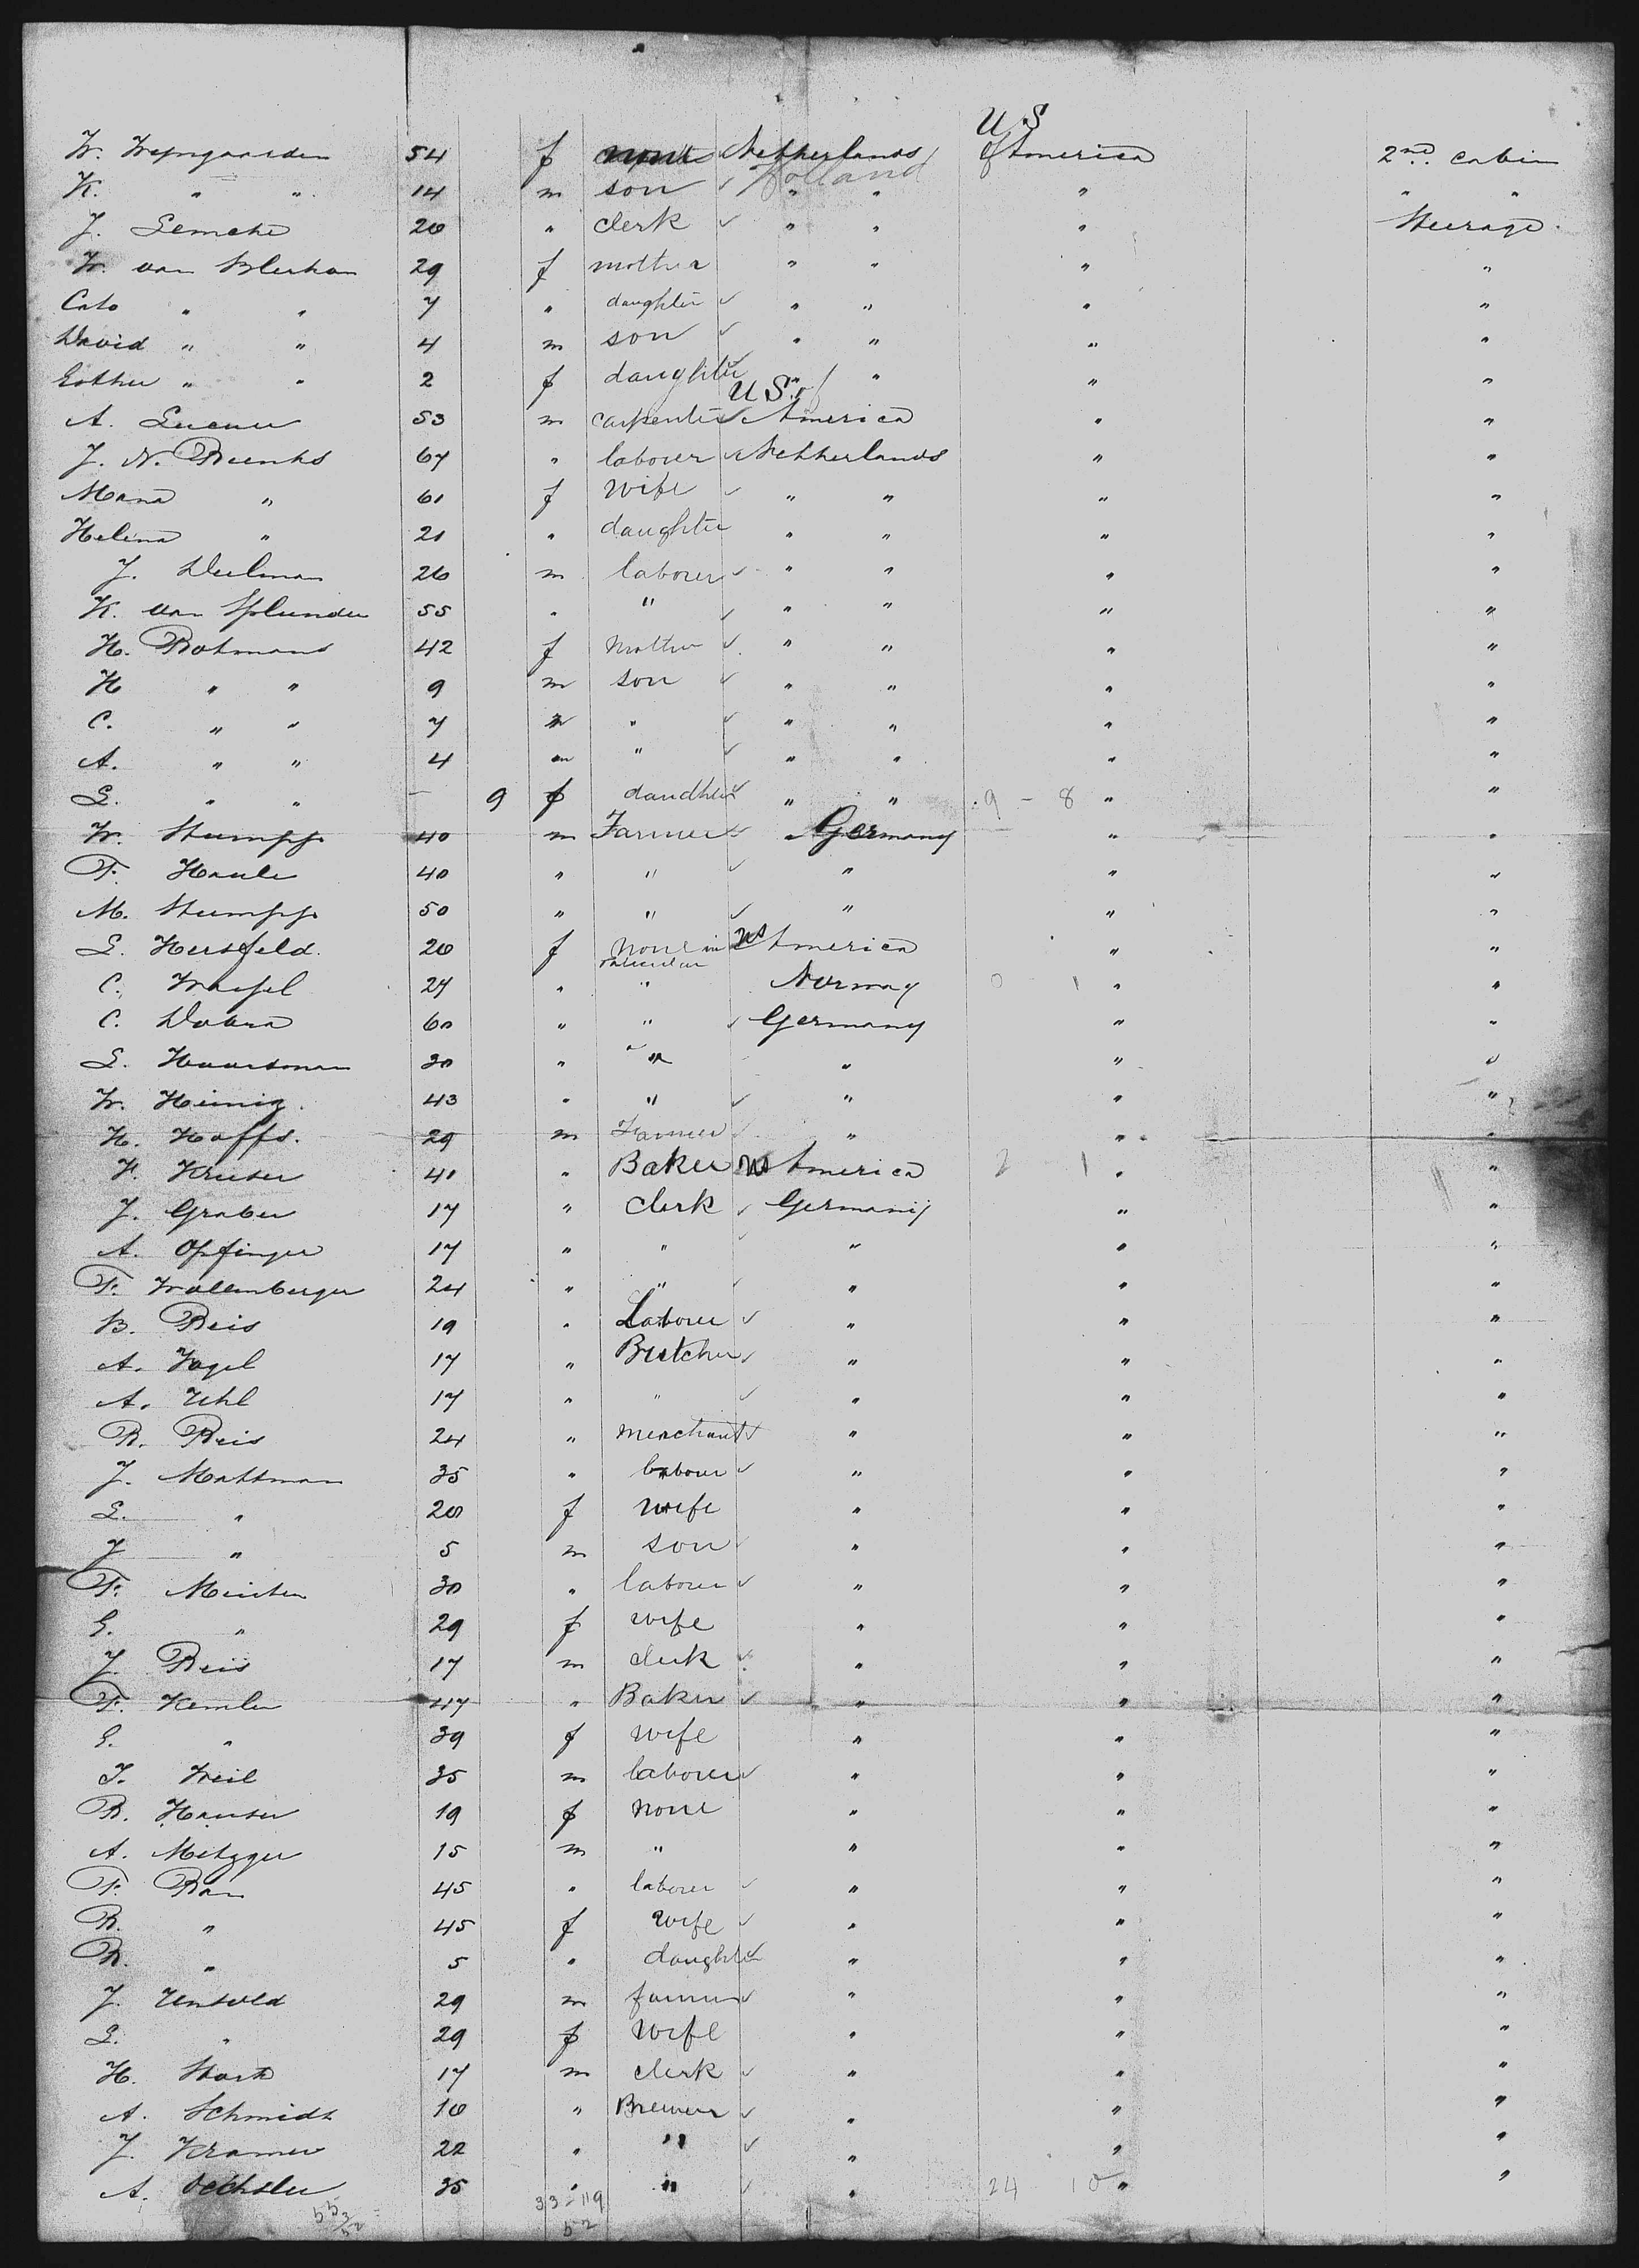 U.S
W. Wijngaarden 54 f none Netherlands of America 2nd cabin
K. " " 14 m son " Holland " " " "
J. Lemcke 20 " clerk " " " Steerage
W. van Blerkom 29 f mother " " " "
Cato " " 7 " daughter " " " "
David " " 4 m son " " " "
Esther " " 2 f daughter " " " "
U S of
A. 53 m carpenter America " "
J. N. Reenks 67 " laborer Netherlands " "
Maria " 61 f wife " " " "
Helena " 21 " daughter " " " "
J. 26 m laborer " " " "
K. van Splunder 55 " " " " " "
H. Rotmans 42 f mother " " " "
H " " 9 m son " " " "
C. " " 7 m " " " " "
A. " " 4 m " " " " "
L. " " 9 f daudhter " " 9 - 8 " "
W. Stumpp 40 m Farmer Germany " "
F. Haule 40 " " " " "
M. Stumpp 50 " " " " "
L. Hersfeld. 20 f none in US America " "
particular
C. 24 " " Norway 0 1 " "
C. Dobra 60 " " Germany " "
L. Haarsman 30 " " " " "
W. Heinig. 43 " " " " "
H. Hoffs. 29 m Farmer " " "
F. Kruser 41 " Baker US America 2 1 " "
J. Graber 17 " clerk Germany " "
A. Opfinger 17 " " " " "
F. Wallenberger 24 " " " " "
B. Reis 19 " Laborer " " "
A. Vogel 17 " Butcher " " "
A. Uhl 17 " " " " "
R. Reis 24 " merchant " " "
J. Mattman 35 " laborer " " "
L. " 20 f wife " " "
J " 5 m son " " "
F. Minten 30 " laborer " " "
E. " 29 f wife " " "
J. Reis 17 m clerk " " "
F. Kemler 47 " Baker " " "
E. " 39 f wife " " "
J. Weil 35 m laborer " " "
R. Hauser 19 f none " " "
A. Metzger 15 m " " " "
F. Rau 45 " laborer " " "
R. " 45 f wife " " "
R. " 5 " daughter " " "
J. Untveld 29 m farmer " " "
L. " 29 f wife " " "
H. Stark 17 m clerk " " "
A. Schmidt 16 " Brewer " " "
J. Kramer 22 " " " " "
A. Oechsler 35 " " " 24 10 " "
33 - 119
52